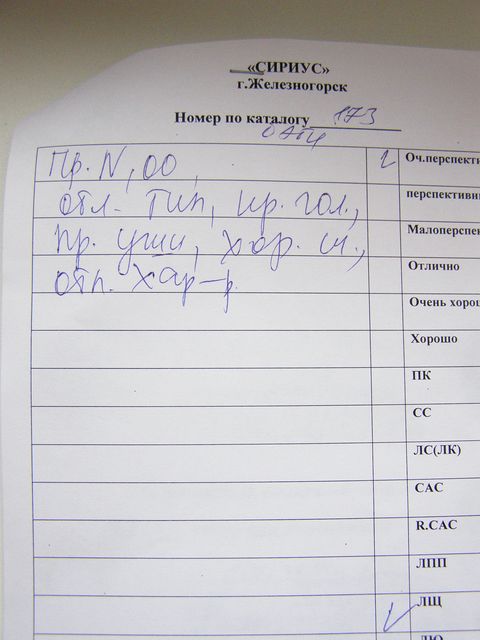 «СИРИУС»
г.Железногорск
Номер по каталогу 173
Пр. N, ОО,
отл. тип, кр. гол.,
пр. уши, хор. сл.,
отл. хар-р.
Оч.перспекти
перспективн
Малоперспек
Отлично
Очень хорош
Хорошо
ПК
СС
ЛС(ЛК)
САС
R.САС
ЛПП
ЛЩ
ЛЮ